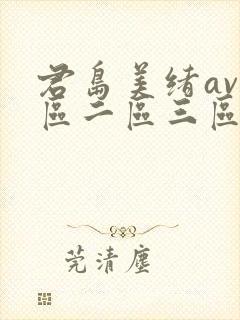 君島美緒av
區二區三區
莞清塵